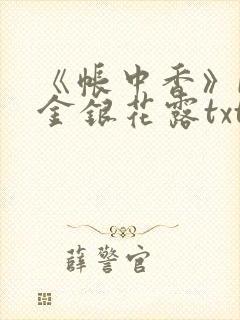 《帐中香》
金银花露txt
薛警官